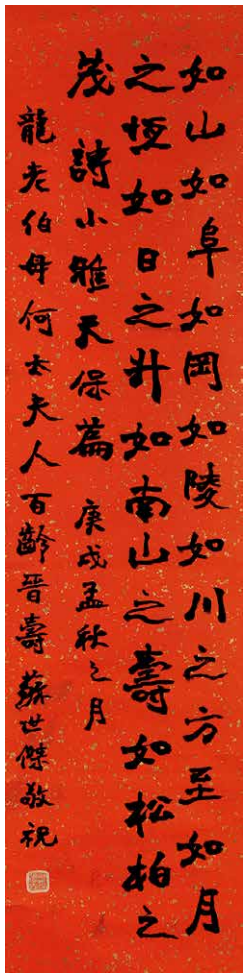 如山如阜如岡如陵如川之方至如月
之恆如日之升如南山之壽如松柏之
茂 詩小雅天保篇 庚戌孟秋之月
龍老伯母何太夫人百齡晉壽 蘇世傑敬祝